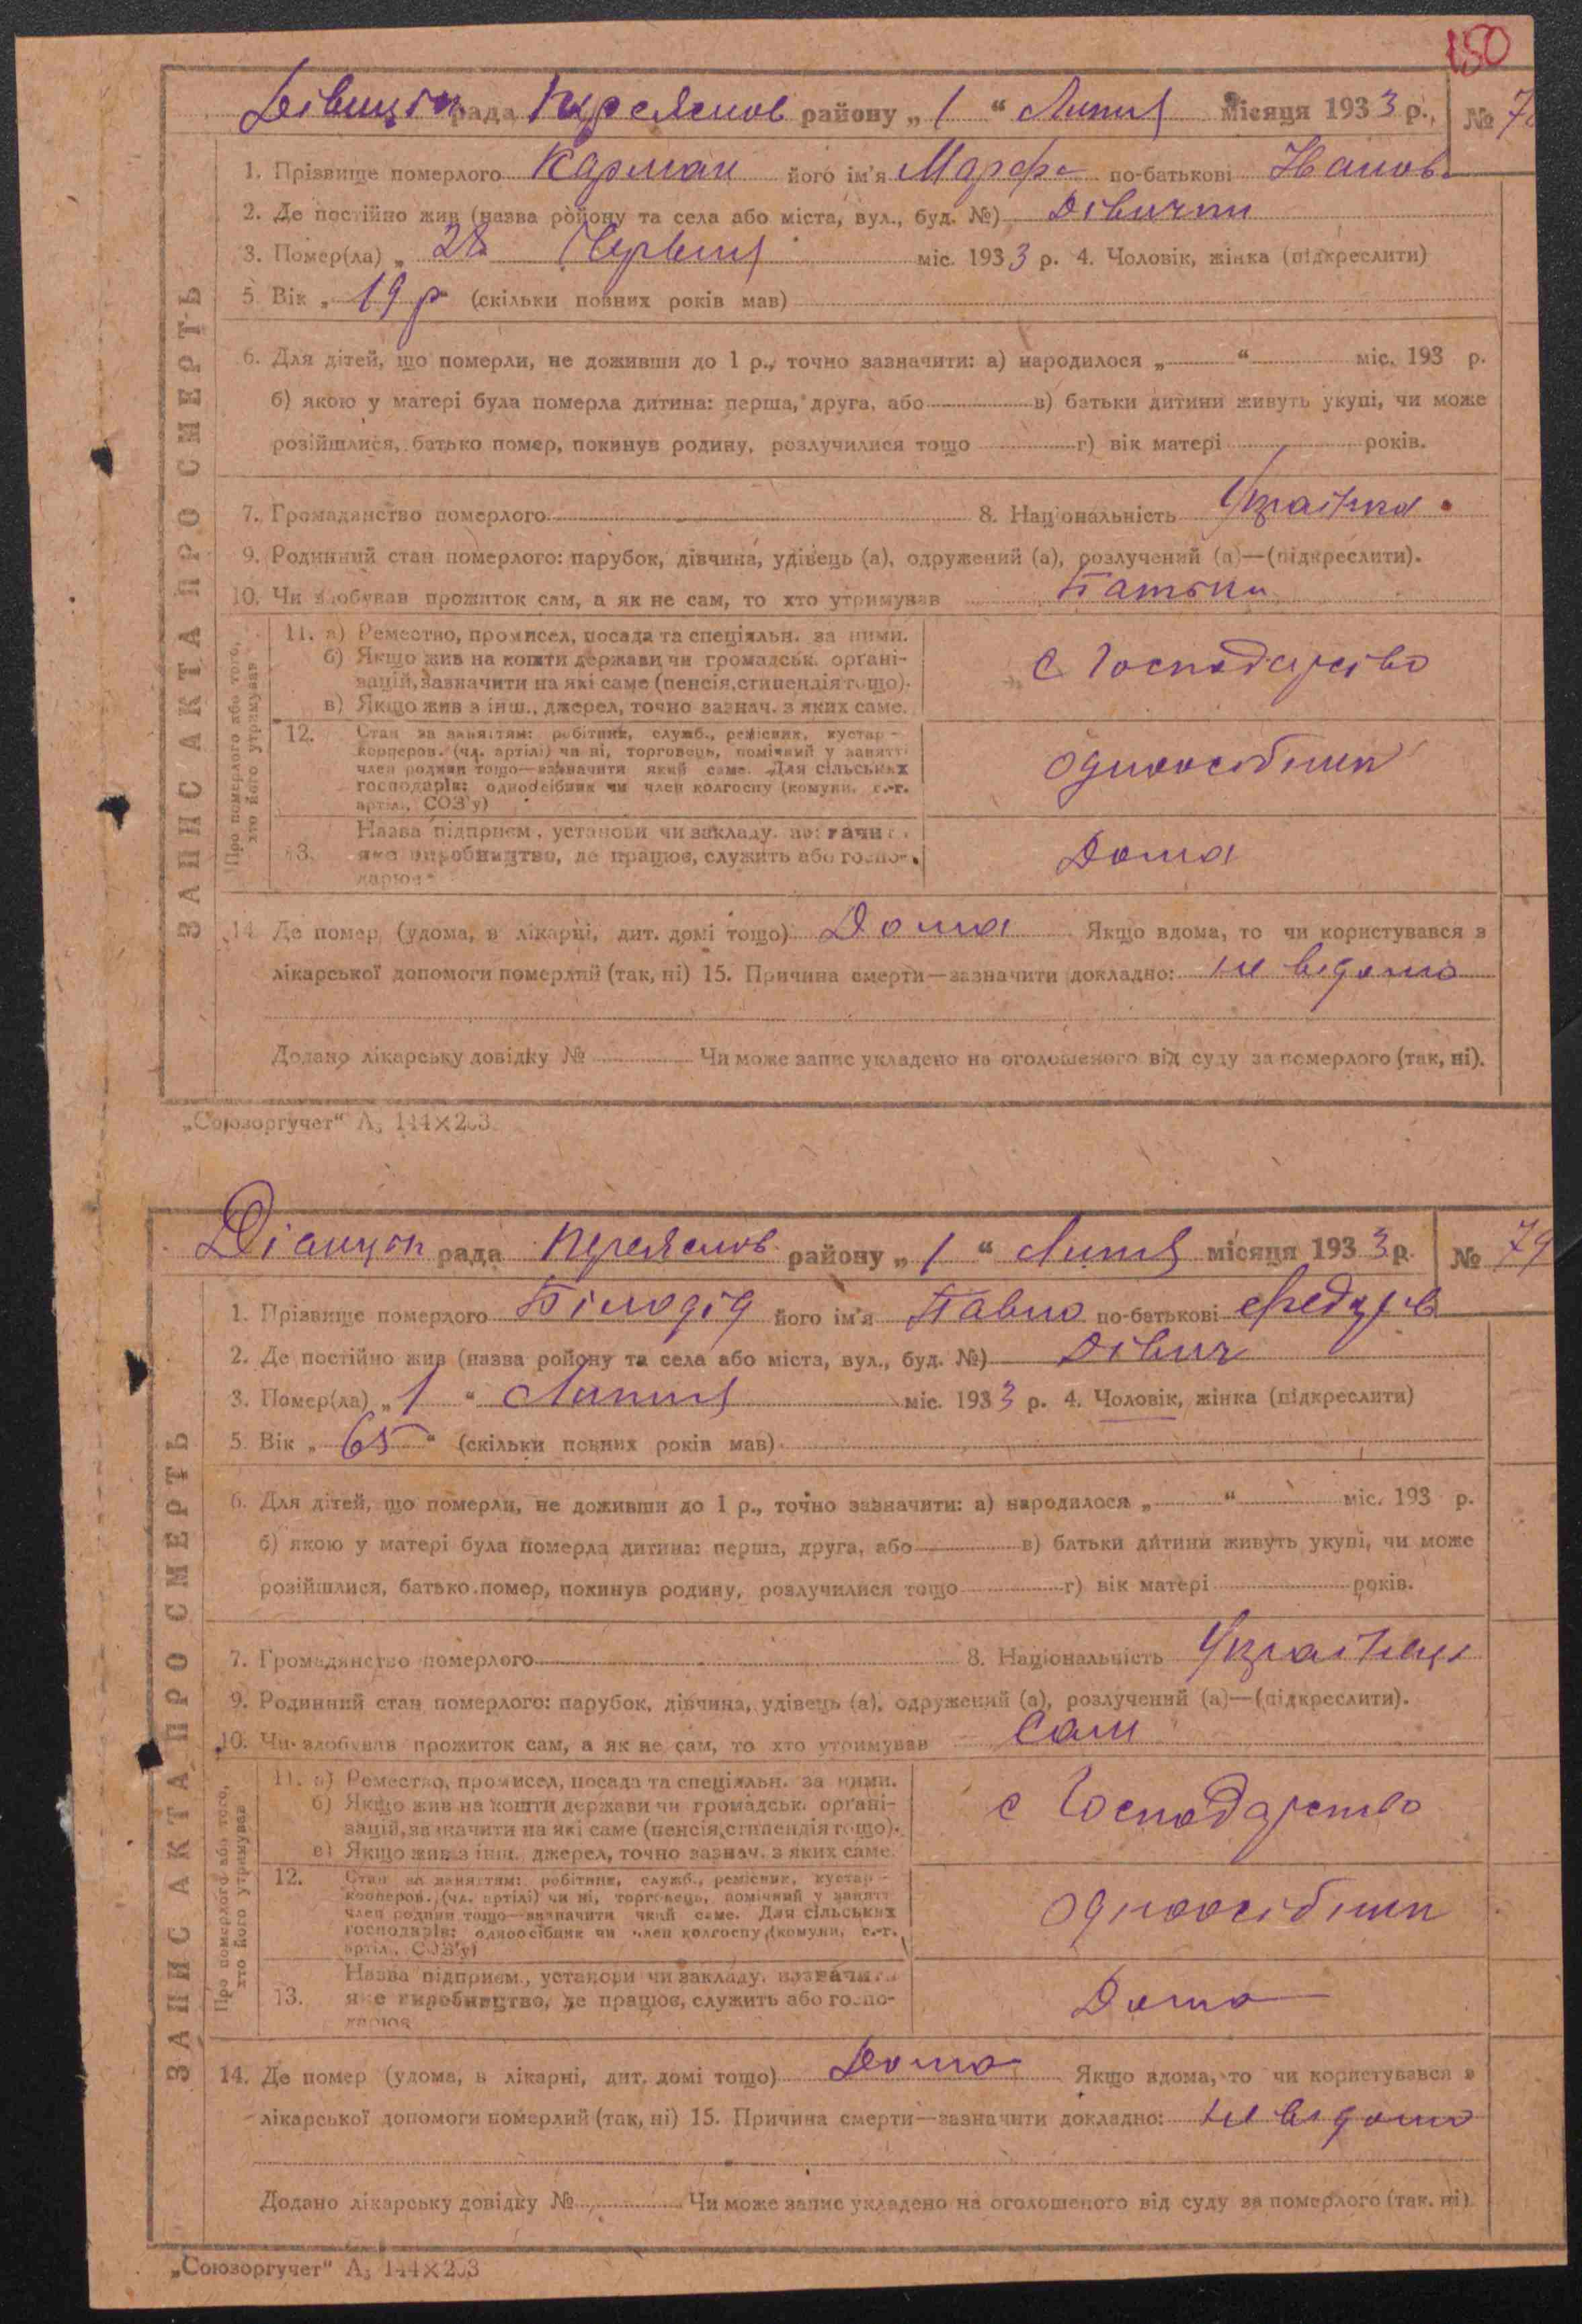 150
Дівицьк рада Переяслов району „ 1 “ Липня місяця 1933 р., № 7
1. Прізвище померлого Карман його ім'я Марфа по-батькові Іванов
2. Де постійно жив (назва району та села або міста, вул., буд. №) Дівички
3. Помер(ла) „ 28 Червня міс. 1933 р. 4. Чоловік, жінка (підкреслити)
5. Вік „ 19 р (скільки повних років мав)
6. Для дітей, що померли, не доживши до 1 р., точно зазначити: а) народилося „ “ міс. 193 р.
б) якою у матері була померла дитина: перша, друга, або в) батьки дитини живуть укупі, чи може
розійшлися, батько помер, покинув родину, розлучилися тощо г) вік матері років.
7. Громадянство померлого 8. Національність Українка
9. Родинний стан померлого: парубок, дівчина, удівець (а), одружений (а), розлучений (а)—(підкреслити).
10. Чи здобував прожиток сам, а як не сам, то хто утримував Батьки
11. а) Ремество, промисел, посада та спеціяльн. за ними.
б) Якщо жив на кошти держави чи громадськ. органі-
зацій, зазначити на які саме (пенсія, стипендія тощо).
в) Якщо жив з інш., джерел, точно зазнач. з яких саме.
С Господарство
12. Стан за заняттям: робітник, служб., ремісник, кустар -
кооперов. (чл. артілі) чи ні, торговець, помічний у занятті
член родини тощо—зазначити який саме. Для сільських
господарів: одноосібник чи член колгоспу (комуни, с.-г.
артіл., СОЗ'у)
одноосібник
13. Назва підприєм., установи чи закладу, зазначити
яке виробництво, де працює, служить або госпо-
дарює
Дома
Про померлого або того,
хто його утримував
ЗАПИС АКТА ПРО СМЕРТЬ
14. Де помер (удома, в лікарні, дит. домі тощо) Дома Якщо вдома, то чи користувався з
лікарської допомоги померлий (так, ні) 15. Причина смерти—зазначити докладно: не відомо
Додано лікарську довідку № Чи може запис укладено на оголошеного від суду за померлого (так, ні).
„Союзоргучет“ А₅ 144×203
Рада Переяслов району „ 1 “ Липня місяця 1933 р. № 79
1. Прізвище померлого Білодід його ім'я Павло по-батькові Федор
2. Де постійно жив (назва району та села або міста, вул., буд. №) Дівич
3. Помер(ла) „ 1 “ Липня міс. 1933 р. 4. Чоловік, жінка (підкреслити)
5. Вік „ 65 “ (скільки повних років мав)
6. Для дітей, що померли, не доживши до 1 р., точно зазначити: а) народилося „ “ міс. 193 р.
б) якою у матері була померла дитина: перша, друга, або в) батьки дитини живуть укупі, чи може
розійшлися, батько помер, покинув родину, розлучилися тощо г) вік матері років.
7. Громадянство померлого 8. Національність Українец
9. Родинний стан померлого: парубок, дівчина, удівець (а), одружений (а), розлучений (а)—(підкреслити).
10. Чи здобував прожиток сам, а як не сам, то хто утримував Сам
11. а) Ремество, промисел, посада та спеціяльн. за ними.
б) Якщо жив на кошти держави чи громадськ. органі-
зацій, зазначити на які саме (пенсія, стипендія тощо).
в) Якщо жив з інш. джерел, точно зазнач. з яких саме.
с Господарство
12. Стан за заняттям: робітник, служб., ремісник, кустар -
кооперов. (чл. артілі) чи ні, торговець, помічний у занятті
член родини тощо—зазначити який саме. Для сільських
господарів: одноосібник чи член колгоспу (комуни, с.-г.
артіл., СОЗ'у)
одноосібник
13. Назва підприєм., установи чи закладу, зазначити
яке виробництво, де працює, служить або госпо-
дарює
Дома
Про померлого або того,
хто його утримував
ЗАПИС АКТА ПРО СМЕРТЬ
14. Де помер (удома, в лікарні, дит. домі тощо) Дома Якщо вдома, то чи користувався з
лікарської допомоги померлий (так, ні) 15. Причина смерти—зазначити докладно: не відомо
Додано лікарську довідку № Чи може запис укладено на оголошеного від суду за померлого (так, ні)
„Союзоргучет“ А₅ 144×203